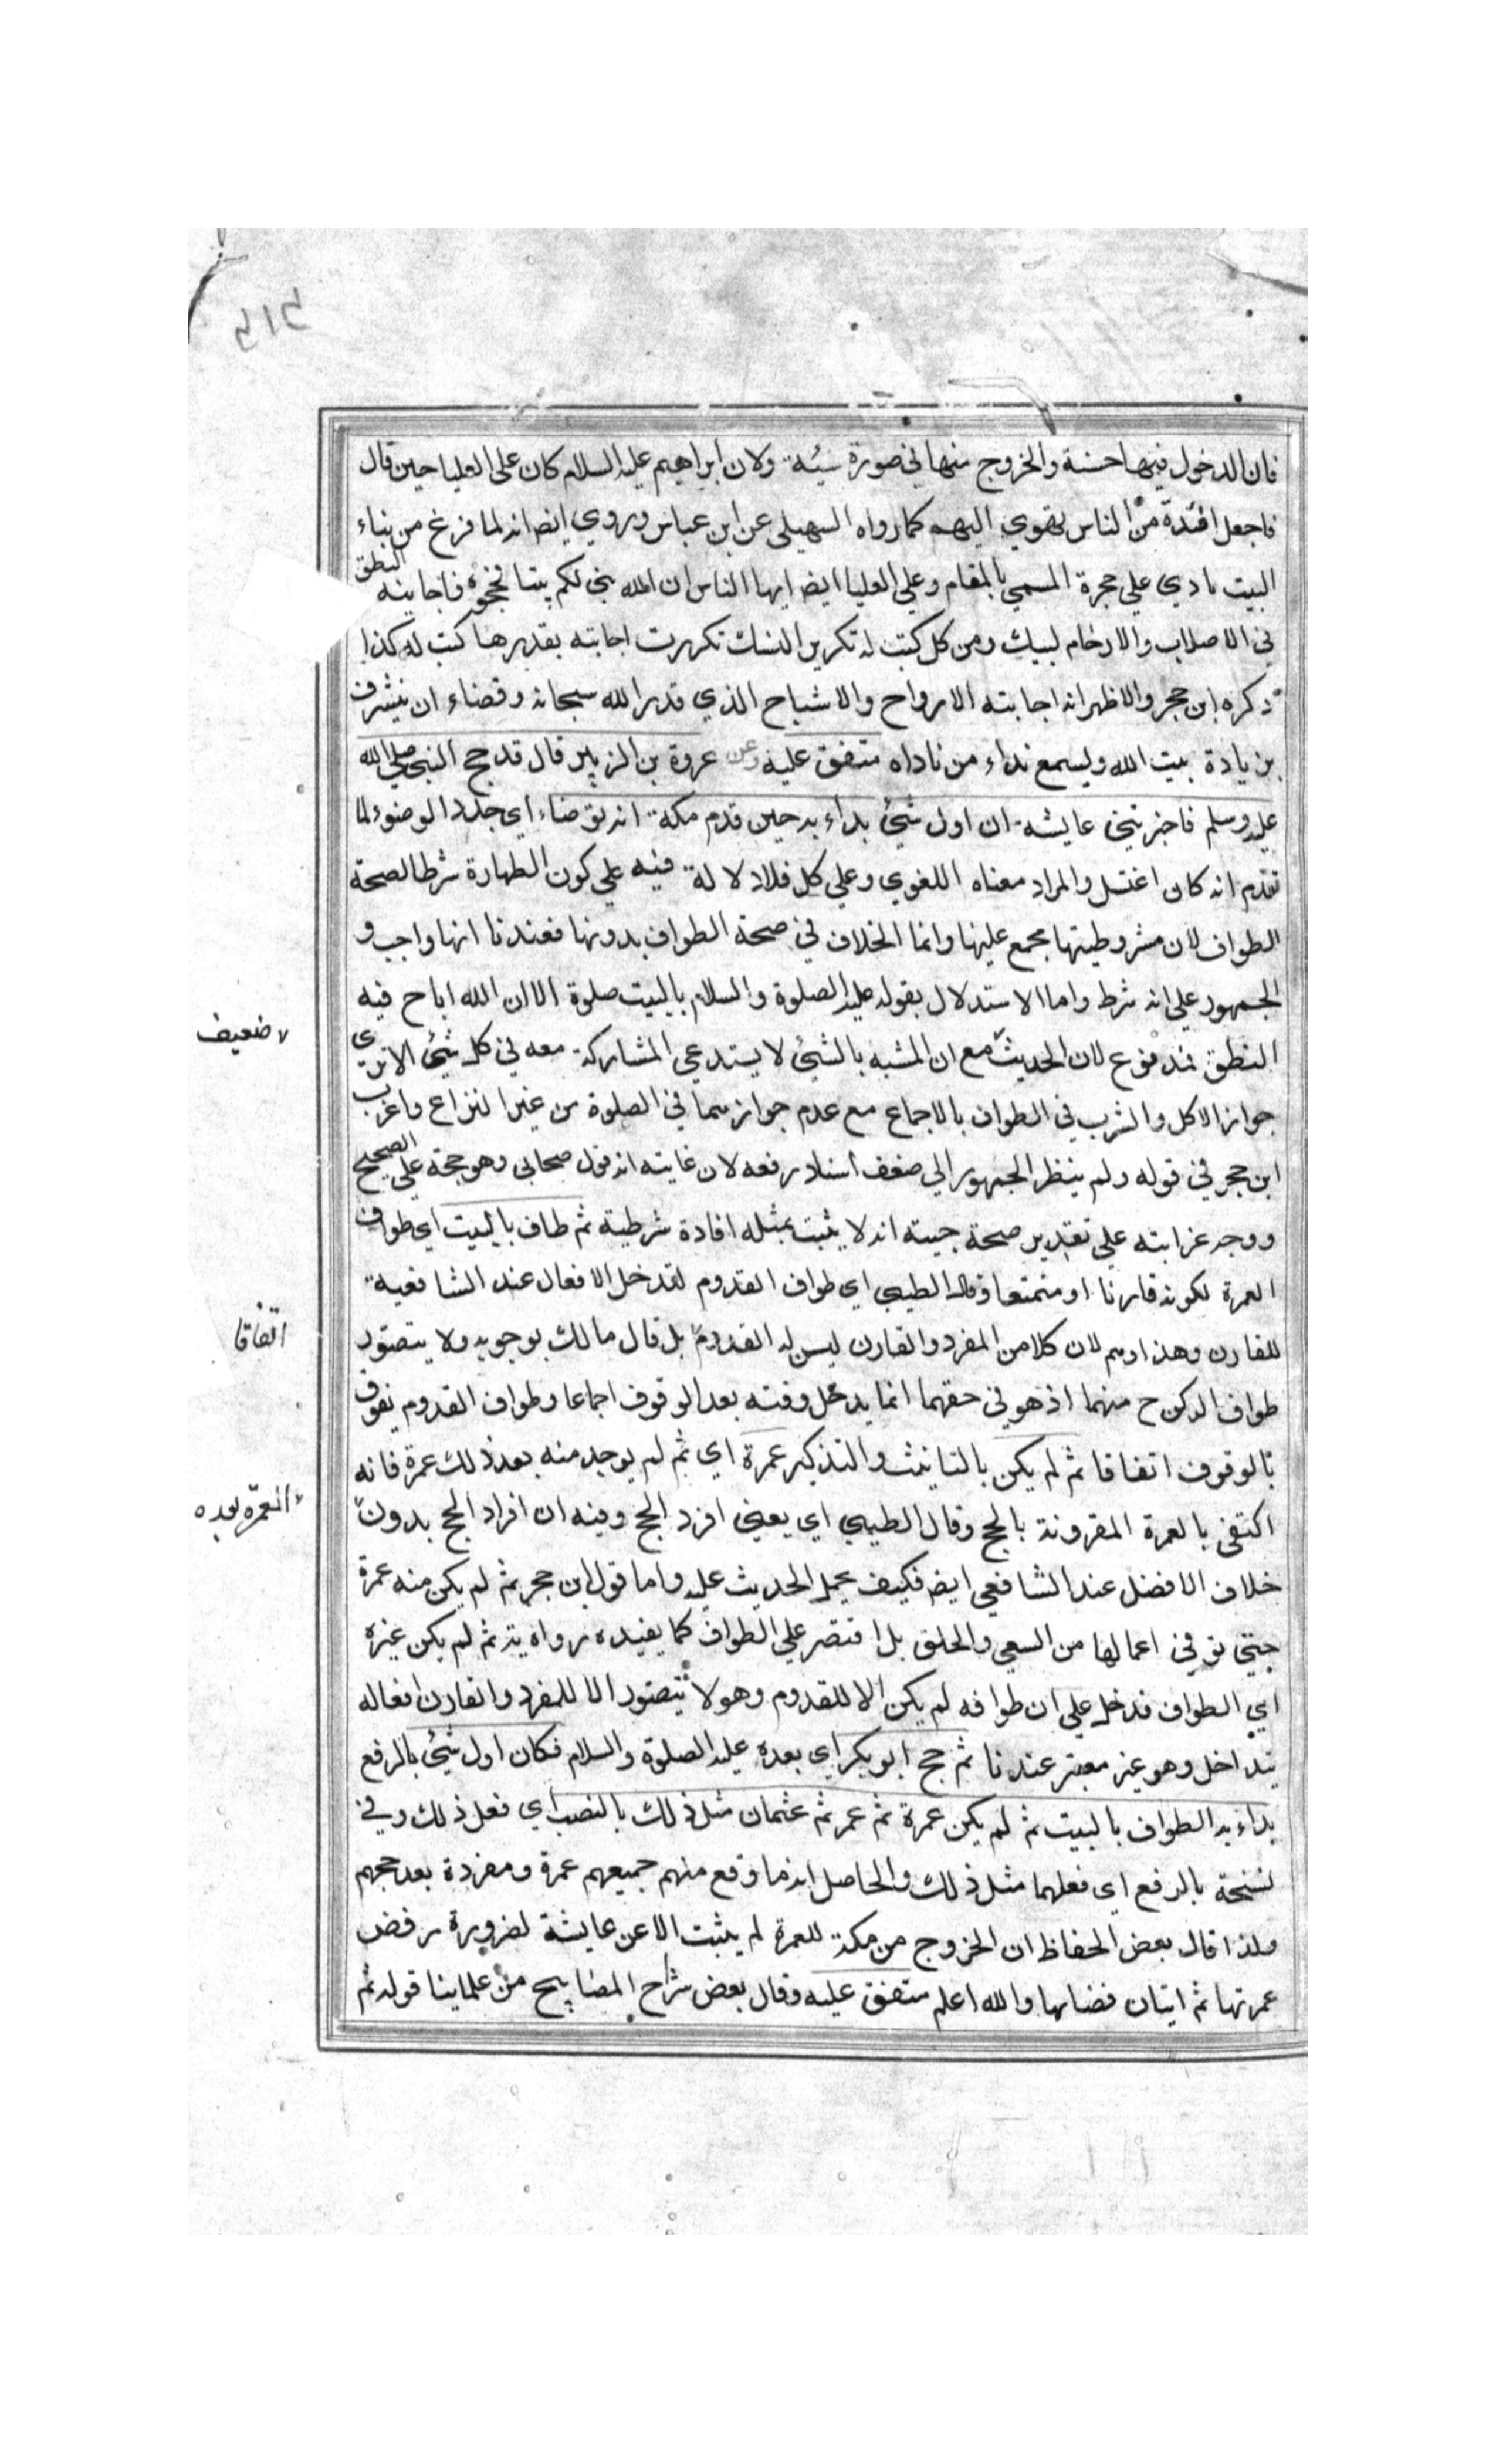 ٤١٣
فان الدخول فيها حسنة والخروج منها في صورة سيئة ولان ابراهيم عليه السلام كان على العليا حين قال
فاجعل افئدة من الناس تهوي اليهم كما رواه السهيلي عن ابن عباس وروي ايض انه لما فرغ من بناء
البيت نادي علي حجرة المسمي بالمقام وعلي العليا ايض ايها الناس ان الله بني لكم بيتا فحجوه فاجابته النطق
في الاصلاب والارحام لبيك ومن كل كتب له تكرير النسك تكررت اجابته بقدرها كتب له كذا
ذكره ابن حجر والاظهر انه اجابته الارواح والاشباح الذي قدر الله سبحانه وقضاء ان يتشرف
بزيادة بيت الله وليسمع نداء من ناداه متفق عليه وعن عروة بن الزبير قال قد حج النبي صلي الله
عليه وسلم فاخبرتني عايشة ان اول شئ بداء به حين قدم مكة انه توضاء اي جدد الوضوء لما
تقدم انه كان اغتسل والمراد معناه اللغوي وعلي كل فلا دلالة فيه علي كون الطهارة شرطا لصحة
الطواف لان مشروطيتها مجمع عليها وانما الخلاف في صحة الطواف بدونها فعندنا انها واجب و
الجمهور علي انه شرط واما الاستدلال بقوله عليه الصلوة والسلام بالبيت صلوة الا ان الله اباح فيه
النطق فمدفوع لان الحديث مع ان المشبه بالشئ لا يستدعي المشاركة معه في كل شئ الا تري
ضعيف
جواز الاكل والشرب في الطواف بالاجماع مع عدم جوازهما في الصلوة من غير النزاع واغرب
ابن حجر في قوله ولم ينظر الجمهور الي ضعف اسناد رفعه لان غايته انه قول صحابي وهو حجة علي الصحيح
ووجه غرابته علي تقدير صحة حجيته انه لا يثبت بمثله افادة شرطية ثم طاف بالبيت اي طواف
العمرة لكونه قارنا او متمتعا وقال الطيبي اي طواف القدوم لتدخل الافعال عند الشافعية
للقارن وهذا وهم لان كلا من المفرد والقارن ليس له القدوم بل قال مالك بوجوبه ولا يتصور
اتفاقا
طواف الركن ح منهما اذ هو في حقهما انما يدخل وقته بعد الوقوف اجماعا وطواف القدوم يفوت
بالوقوف اتفاقا ثم لم يكن بالتانيث والتذكير عمرة اي ثم لم يوجد منه بعد ذلك عمرة فانه
اكتفي بالعمرة المقرونة بالحج وقال الطيبي اي يعني افرد الحج وفيه ان افراد الحج بدون
العمرة بعده
خلاف الافضل عند الشافعي ايض فكيف يحمل الحديث عليه واما قول ابن حجر ثم لم يكن منه عمرة
حتي توفي اعمالها من السعي والحلق بل اقتصر علي الطواف كما يفيده رواية ثم لم يكن غيره
اي الطواف فدخل علي ان طوافه لم يكن الا للقدوم وهو لا يتصور الا للمفرد والقارن افعاله
تتداخل وهو غير معتبر عندنا ثم حج ابو بكر اي بعده عليه الصلوة والسلام فكان اول شئ بالرفع
بداء به الطواف بالبيت ثم لم يكن عمرة ثم عمر ثم عثمان مثل ذلك بالنصب اي فعل ذلك وفي
نسخة بالرفع اي فعلهما مثل ذلك والحاصل انه ما وقع منهم جميعهم عمرة ومفردة بعد حجهم
ولذا قال بعض الحفاظ ان الخروج من مكة للعمرة لم يثبت الا عن عايشة لضرورة رفض
عمرتها ثم اتيان قضايها والله اعلم متفق عليه وقال بعض شراح المصابيح من علماينا قوله ثم